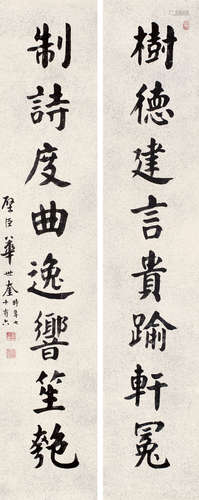 樹德建言貴踰軒冕
制詩度曲逸響笙匏
璧臣華世奎時年七十有六